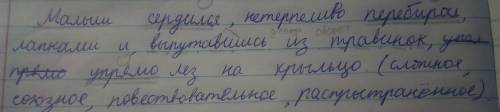 Малыш сердился, нетерпеливо перебирая
лапками и, выпутавшись из травинок, упал
прямо упрямо лез на крыльцо. (сложное,
союзное, повествовательное, распространённое)